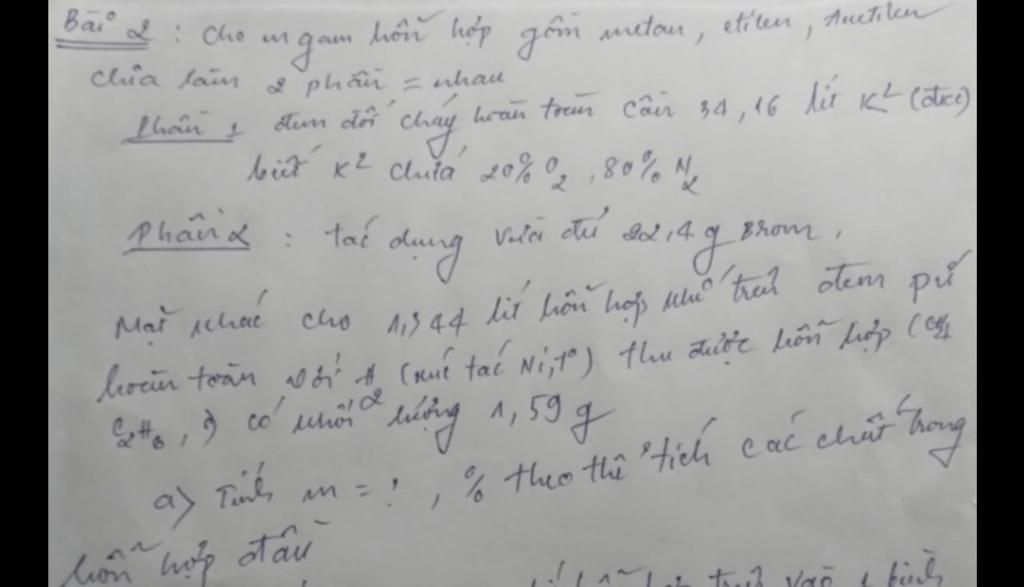 Bài 2 : Cho m gam hỗn hợp gồm metan, etilen, Axetilen
chia làm 2 phần = nhau
Phần 1 đem đốt cháy hoàn toàn cần 34,16 lít K² (đktc)
biết K² chứa 20% O₂, 80% N₂
Phần 2 : tác dụng vừa đủ 22,4 g Brom,
Mặt khác cho 1,344 lít hỗn hợp như trên đem pứ
hoàn toàn với H₂ (xúc tác Ni, t°) thu được hỗn hợp (CH₄
C₂H₆, ) có khối lượng 1,59 g
a) Tính m = ? , % theo thể tích các chất trong
hỗn hợp đầu
hỗn hợp trên vào 1 bình